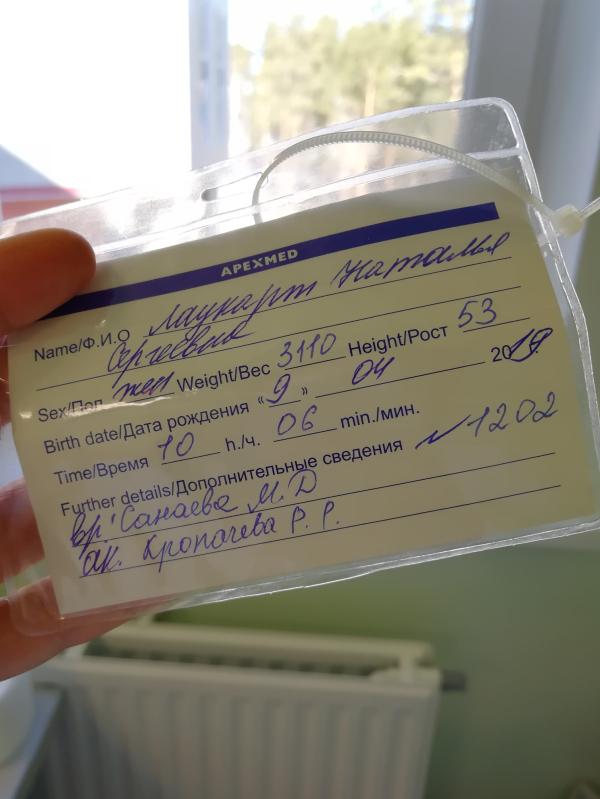 APEXMED
Name/Ф.И.О Лаукарт Наталья
Сергеевна
Sex/Пол жен Weight/Вес 3110 Height/Рост 53
Birth date/Дата рождения «9» 04 2019
Time/Время 10 h./ч. 06 min./мин.
Further details/Дополнительные сведения №1202
вр. Санаева М.Д
ак. Кропачева Р.Р.